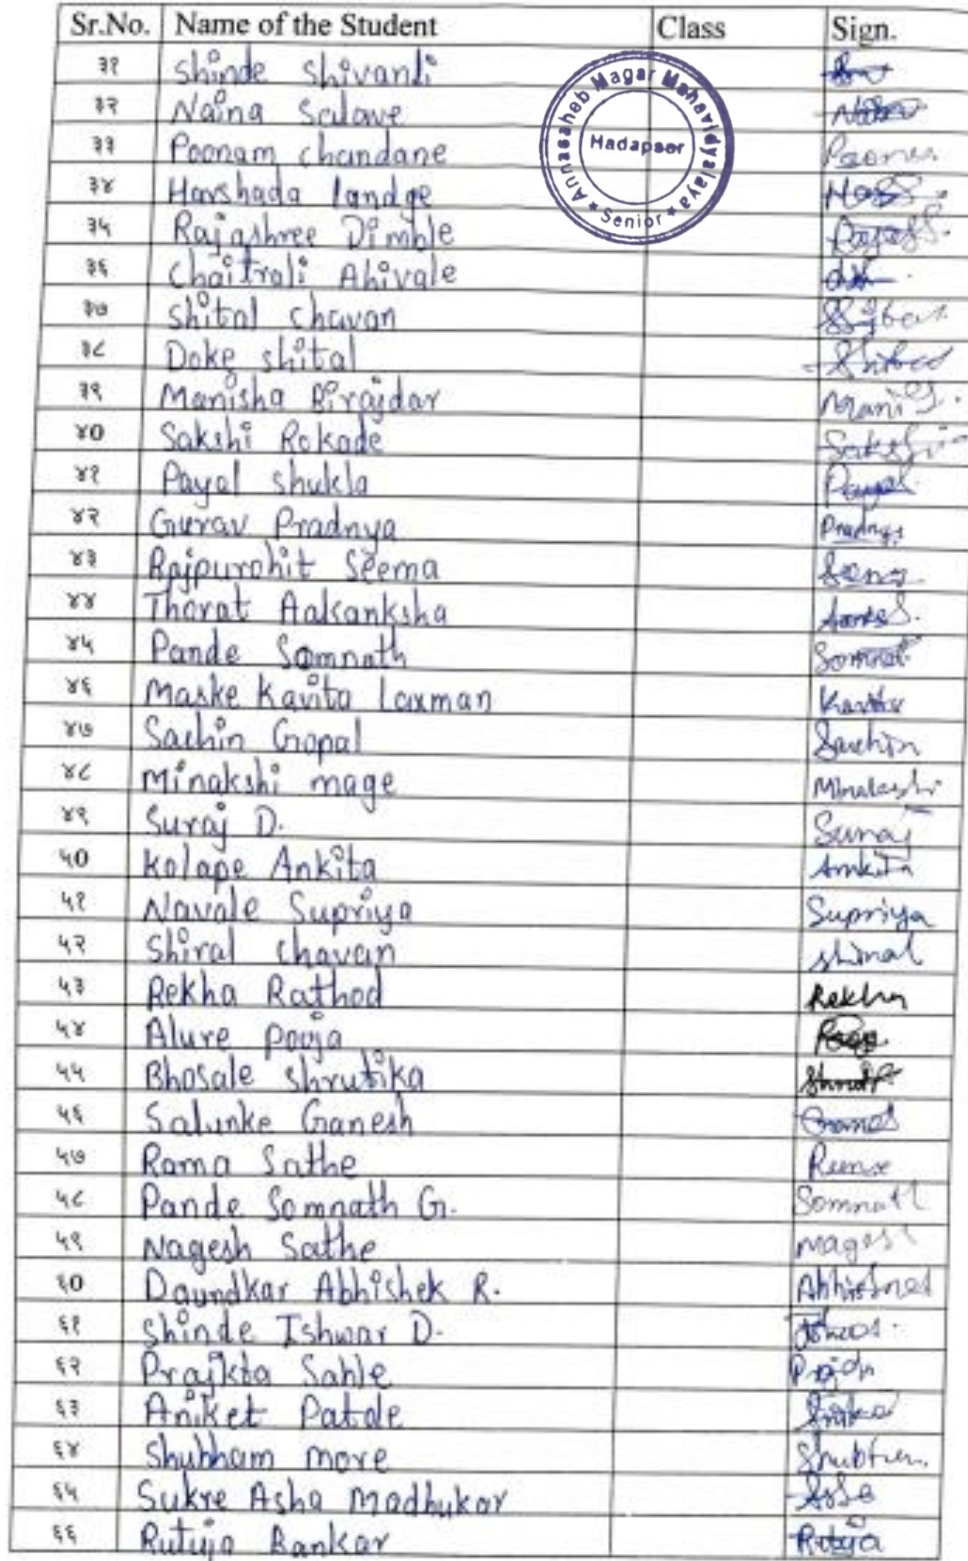 Sr.No. Name of the Student Class Sign.
Annasaheb Magar Mahavidyalaya
Hadapsar
★ Senior ★
३१ Shinde Shivanti
३२ Naina Salave
३३ Poonam chandane Poonam
३४ Harshada landge
३५ Rajashree Dimble
३६ Chaitrali Ahivale
३७ Shital Chavan
३८ Doke shital Shital
३९ Manisha Birajdar
४० Sakshi Rokade Sakshi
४१ Payal Shukla Payal
४२ Gurav Pradnya Pradnya
४३ Rajpurohit Seema
४४ Thorat Aakanksha
४५ Pande Somnath Somnath
४६ Maske Kavita Laxman Kavita
४७ Sachin Gopal Sachin
४८ Minakshi mage Minakshi
४९ Suraj D. Suraj
५० Kolape Ankita Ankita
५१ Navale Supriya Supriya
५२ Shiral chavan
५३ Rekha Rathod Rekha
५४ Alure pooja
५५ Bhosale Shrutika
५६ Salunke Ganesh
५७ Rama Sathe
५८ Pande Somnath G. Somnath
५९ Nagesh Sathe Nagesh
६० Daundkar Abhishek R.
६१ Shinde Ishwar D.
६२ Prajkta Sable
६३ Aniket Patole
६४ Shubham more
६५ Sukre Asha Madhukar
६६ Rutuja Bankar Rutuja